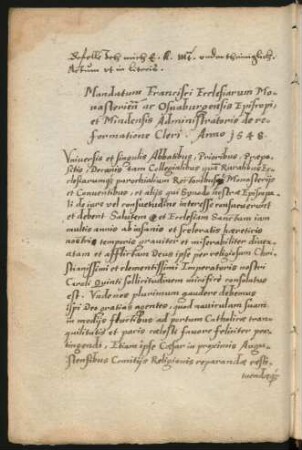 Befelle doch mich E. K. Mt. underthänigklich.
Actum ut in literis.
Mandatum Francisci Ecclesiarum Mo-
nasterien̄ ac Osnaburgensis Episcopi,
et Mindensis Administratoris de re-
formatione Cleri. Anno 1548.
Vniversis et singulis Abbatibus, Prioribus, Præpo-
sitis, Decanis tam Collegiatarum quam Ruralibus Ec-
clesiarumque parochialium Rectoribus, Monasterijs
et Conventibus, et alijs qui Synodo nostræ Episcopa-
li de iure vel consuetudine interesse consueverunt
et debent Salutem. Et Ecclesiam Sanctam iam
multis annis ab insanis et sceleratis hæreticis
nostri temporis graviter et miserabiliter divex-
atam et afflictam Deus ipse per religiosum Chri-
stianissimi et clementissimi Imperatoris nostri
Caroli Quinti sollicitudinem mirifice consolatus
est. Vnde nos plurimum gaudere debemus
ipsi Deo gratias agentes, quod naviculam suam
in medijs fluctibus ad portum Catholicæ tran-
quilitatis et pacis cælesti favore feliciter per-
tingendi, Etiam ipse Cæsar in proximis Augu-
stensibus Comitijs Religionis reparandæ resti-
tuendæq;